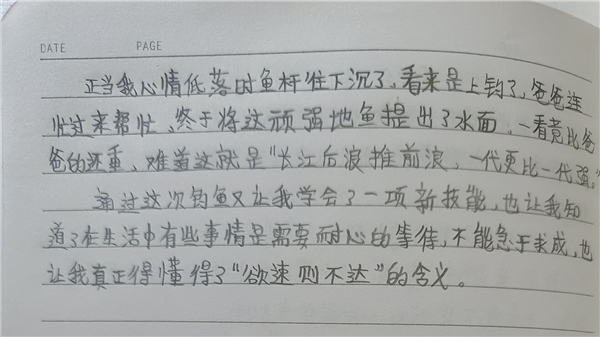 DATE PAGE
正当我心情低落时鱼杆往下沉了，看来是上钩了，爸爸连
忙过来帮忙、终于将这顽强地鱼提出了水面，一看竟比爸
爸的还重，难道这就是“长江后浪推前浪，一代更比一代强。”
通过这次钓鱼又让我学会了一项新技能，也让我知
道了在生活中有些事情是需要耐心的等待，不能急于求成，也
让我真正得懂得了“欲速则不达”的含义。